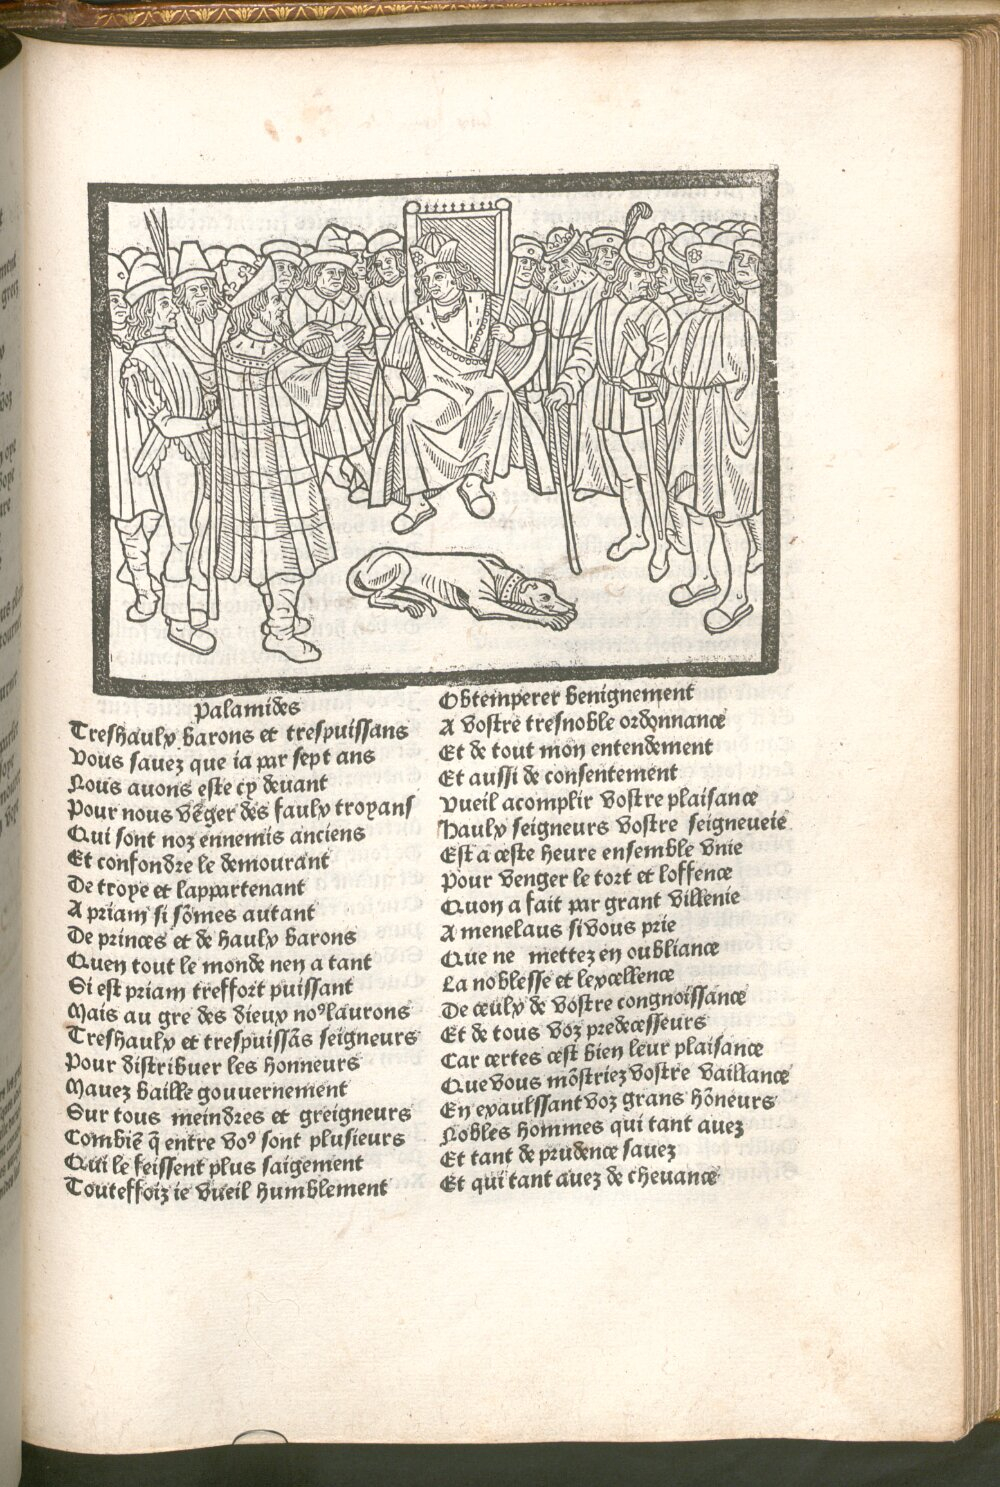 Palamides
Treshaulx barons et trespuissans
Vous sauez que ia par sept ans
Nous auons este cy deuant
Pour nous vẽger des faulx troyans
Qui sont noz ennemis anciens
Et confondre le demourant
De troye et lappartenant
A priam si sõmes autant
De princes et de haulx barons
Quen tout le monde nen a tant
Si est priam treffort puissant
Mais au gre des dieux noꝰ laurons
Treshaulx et trespuissãs seigneurs
Pour distribuer les honneurs
Mauez baille gouuernement
Sur tous meindres et greigneurs
Combiẽ q̃ entre voꝰ sont plusieurs
Qui le feissent plus saigement
Touteffoiz ie vueil humblement
Obtemperer benignement
A vostre tresnoble ordonnance
Et de tout mon entendement
Et aussi de consentement
Vueil acomplir vostre plaisance
Haulx seigneurs vostre seigneueie
Est a ceste heure ensemble vnie
Pour venger le tort et loffence
Quon a fait par grant villenie
A menelaus si vous prie
Que ne mettez en oubliance
La noblesse et lexcellence
De ceulx de vostre congnoissance
Et de tous voz predecesseurs
Car certes cest bien leur plaisance
Que vous mõstriez vostre vaillance
En exaulssant voz grans hõneurs
Nobles hommes qui tant auez
Et tant de prudence sauez
Et qui tant auez de cheuance